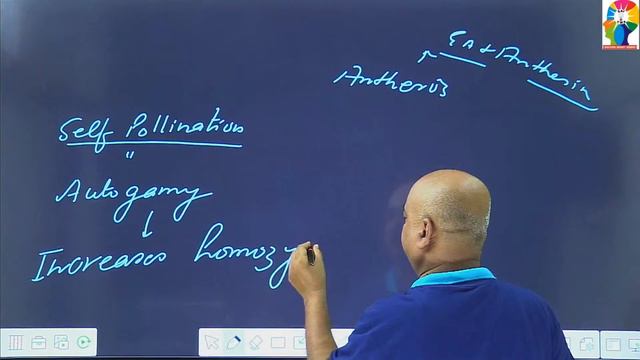 EA & Anthesin
Anthesis
Self Pollination
"
Autogamy
Increases homozy